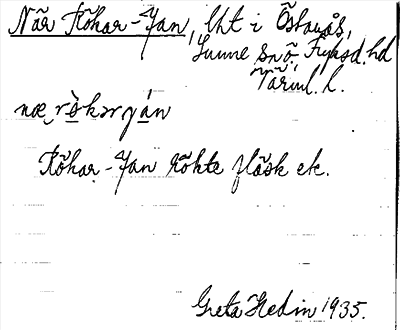 När Rökar-Jan, lht i Östanås,
Sunne snö. Fryksd. hd
Värml. l.
næ, rö̀kəryán
Rökar-Jan rökte fläsk etc.
Greta Hedin 1935.